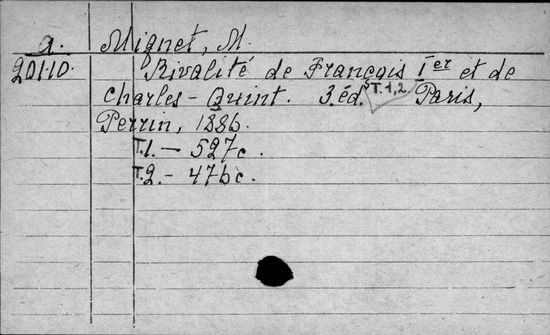 a. Mignet, M.
20110. Rivalité de François Ier et de
Charles-Quint. 3.éd. T.1,2 Paris,
Perrin, 1886.
T.1. — 527c.
T.2. — 476c.